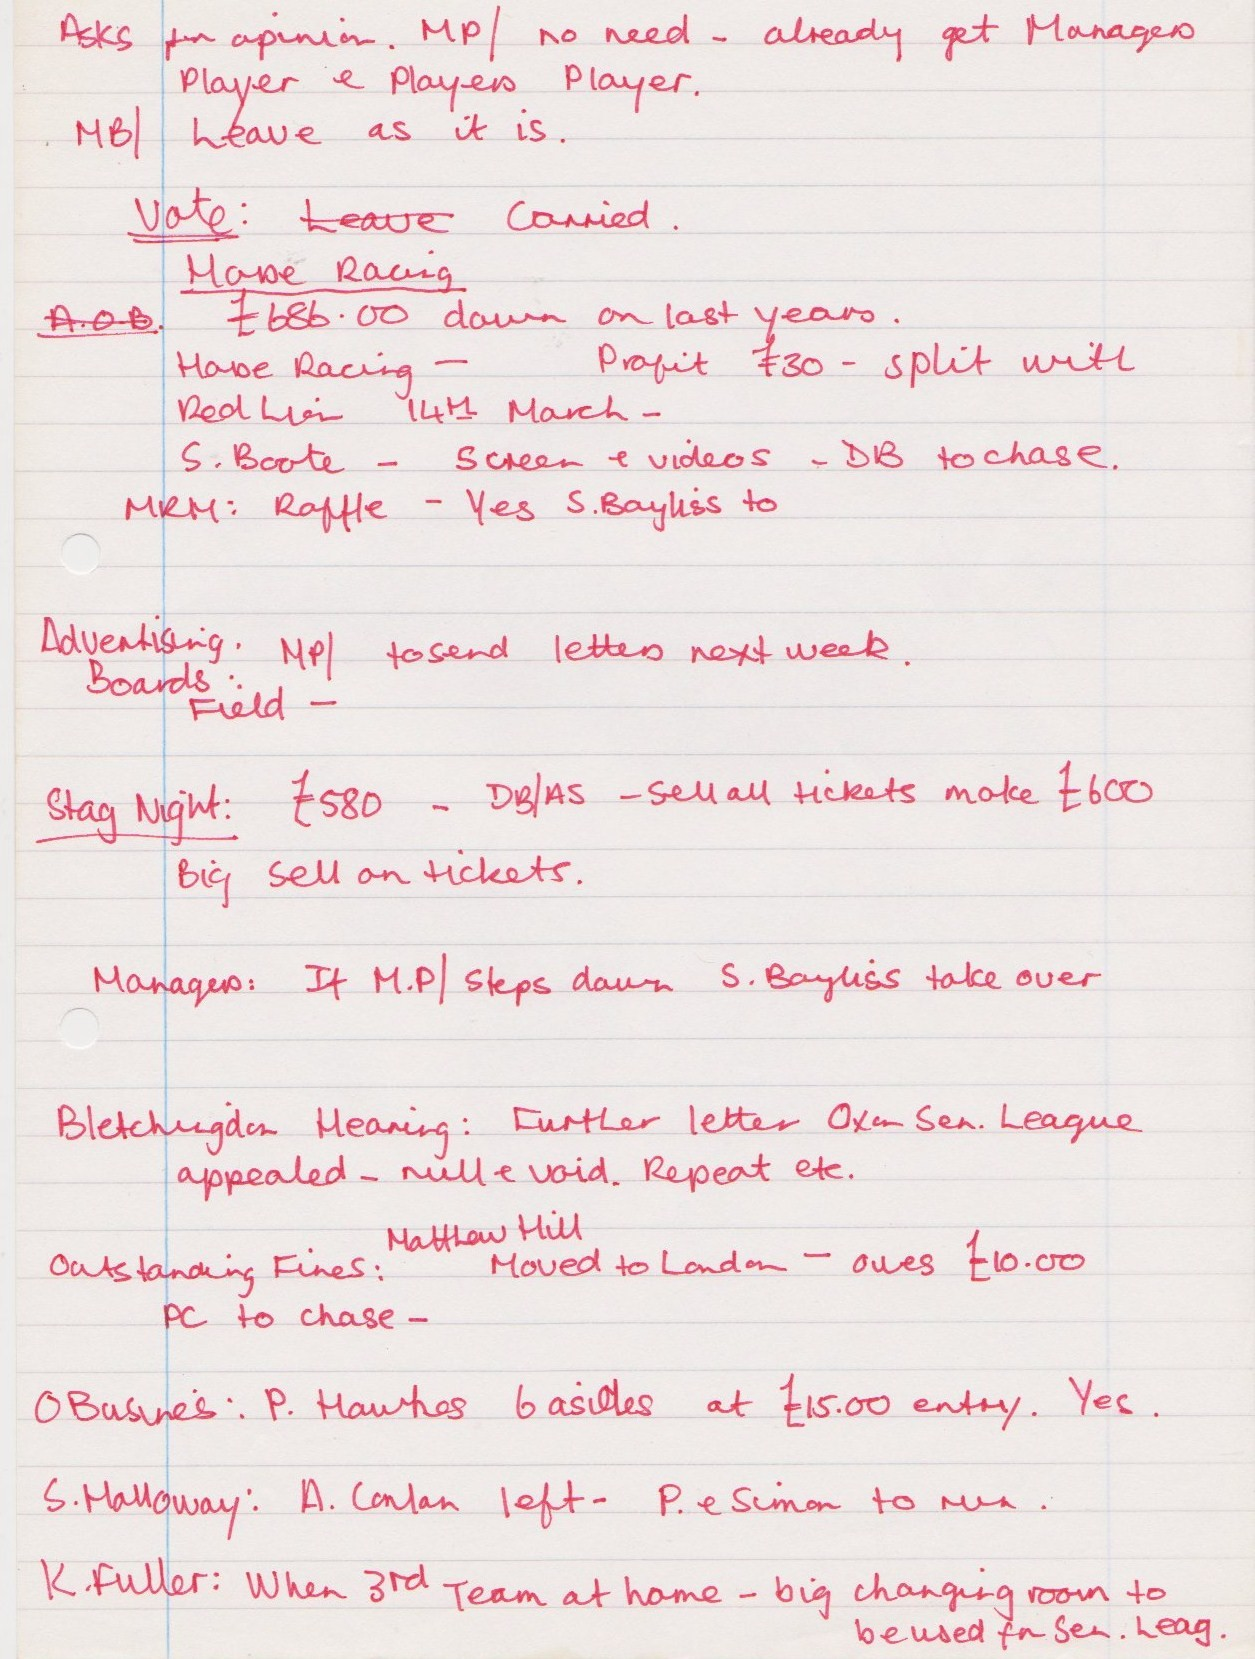 Asks for opinion. MP/ no need - already get Managers
Player & Players Player.
MB/ Leave as it is.
Vote: Leave Carried.
Horse Racing
A.O.B. £686.00 down on last years.
Horse Racing - Profit £30 - split with
Red Lion 14th March -
S. Boote - Screen & videos - DB to chase.
MRM: Raffle - Yes S. Bayliss to
Advertising. MP/ to send letters next week.
Boards:
Field -
Stag Night: £580 - DB/AS - sell all tickets make £600
Big sell on tickets.
Managers: If M.P/ steps down S. Bayliss take over
Bletchingdon Hearing: Further letter Oxon Sen. League
appealed - null & void. Repeat etc.
Matthew Hill
Outstanding Fines: Moved to London - owes £10.00
PC to chase -
O Busines: P. Hawkes 6 asides at £15.00 entry. Yes.
S. Halloway: A. Conlan left - P. & Simon to run.
K. Fuller: When 3rd Team at home - big changing room to
be used for Sen. Leag.